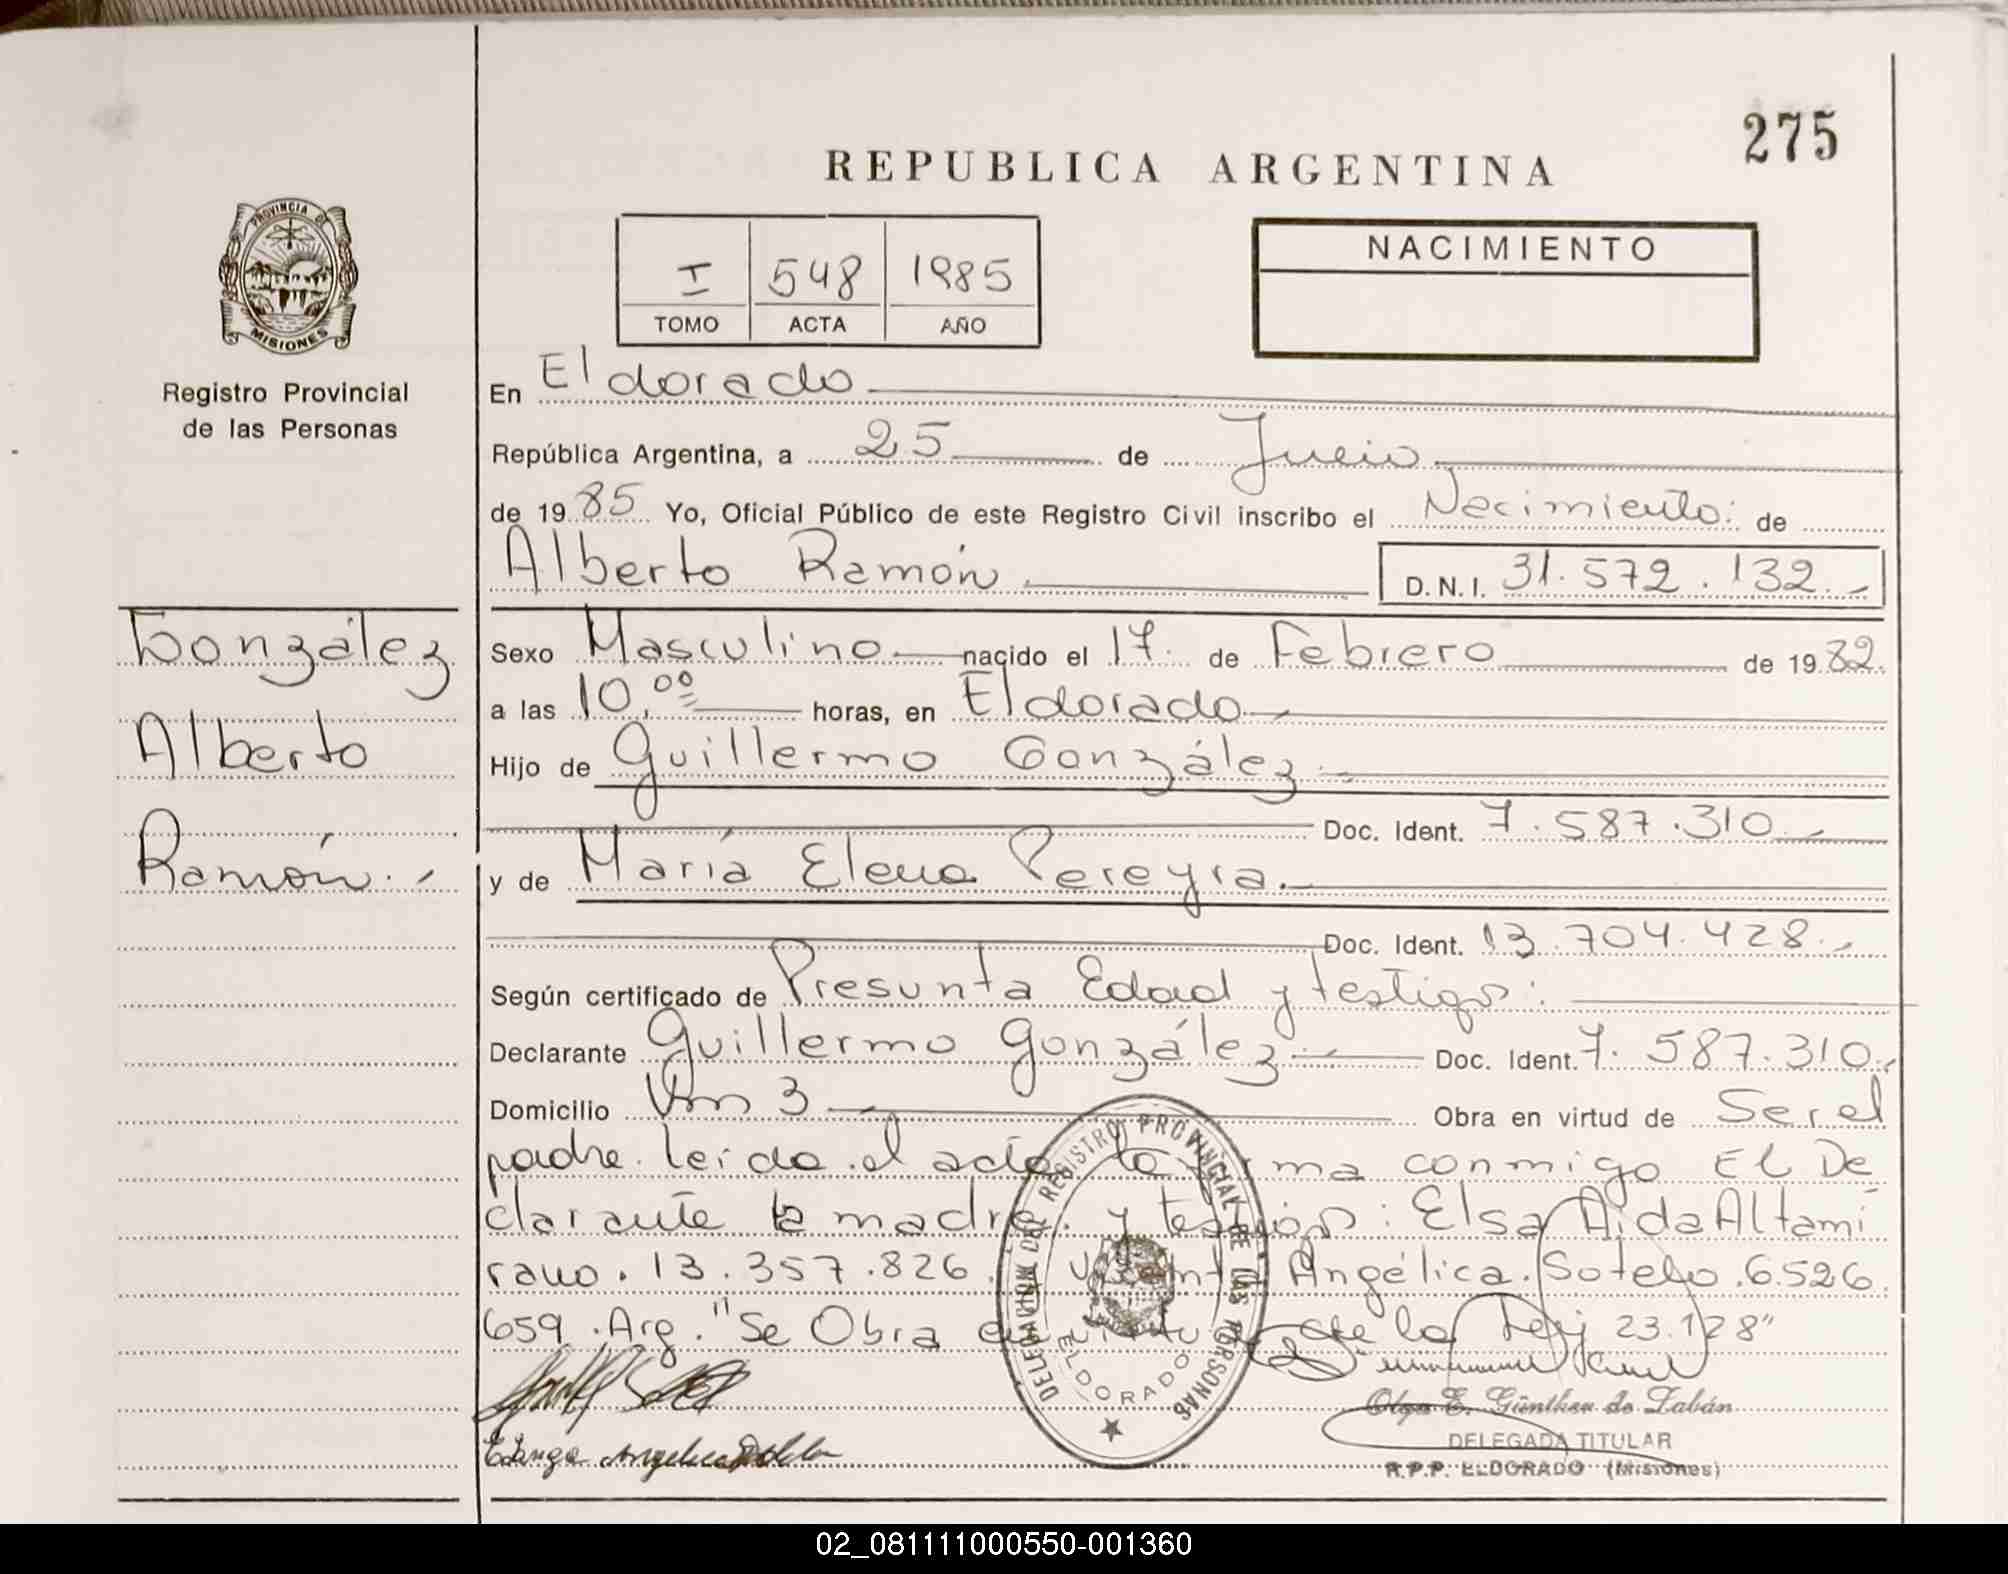 275
REPUBLICA ARGENTINA
PROVINCIA DE
MISIONES
Registro Provincial
de las Personas
I 548 1985
TOMO ACTA AÑO
NACIMIENTO
En Eldorado
República Argentina, a 25 de Julio
de 1985 Yo, Oficial Público de este Registro Civil inscribo el Nacimiento: de
Alberto Ramón D.N.I. 31.572.132.-
González
Alberto
Ramón.-
Sexo Masculino nacido el 17 de Febrero de 1982.
a las 10,00 horas, en Eldorado.-
Hijo de Guillermo González.-
Doc. Ident. 7.587.310.-
y de María Elena Pereyra.-
Doc. Ident. 13.704.428.-
Según certificado de Presunta Edad y testigos:
Declarante Guillermo González.- Doc. Ident. 7.587.310.-
Domicilio Km 3.- Obra en virtud de Ser el
padre. leída el acta la firma conmigo El De
clarante la madre. y testigos: Elsa Aida Altami
rano. 13.357.826. Angélica. Sotelo. 6.526.
659. Arg. "Se Obra en virtud de la Ley 23.128"
DELEGACION DEL REGISTRO PROVINCIAL DE LAS PERSONAS
ELDORADO
Olga E. Günther de Zabán
DELEGADA TITULAR
R.P.P. ELDORADO (Misiones)
02_081111000550-001360